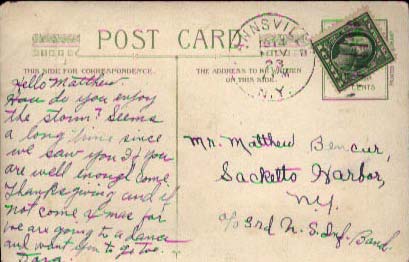 POST CARD
THIS SIDE FOR CORRESPONDENCE.
THE ADDRESS TO BE WRITTEN
ON THIS SIDE.
NNSVIL
23
N.Y.
CENTS
Hello Matthew.
How do you enjoy
the storm? Seems
a long time since
we saw you If you
are well enough come
Thanksgiving and if
not come Xmas for
we are going to a dance
and want you to go too.
Mr. Matthew
Sacketts Harbor,
N.Y.
c/o 3rd U. S. Inf. Band.